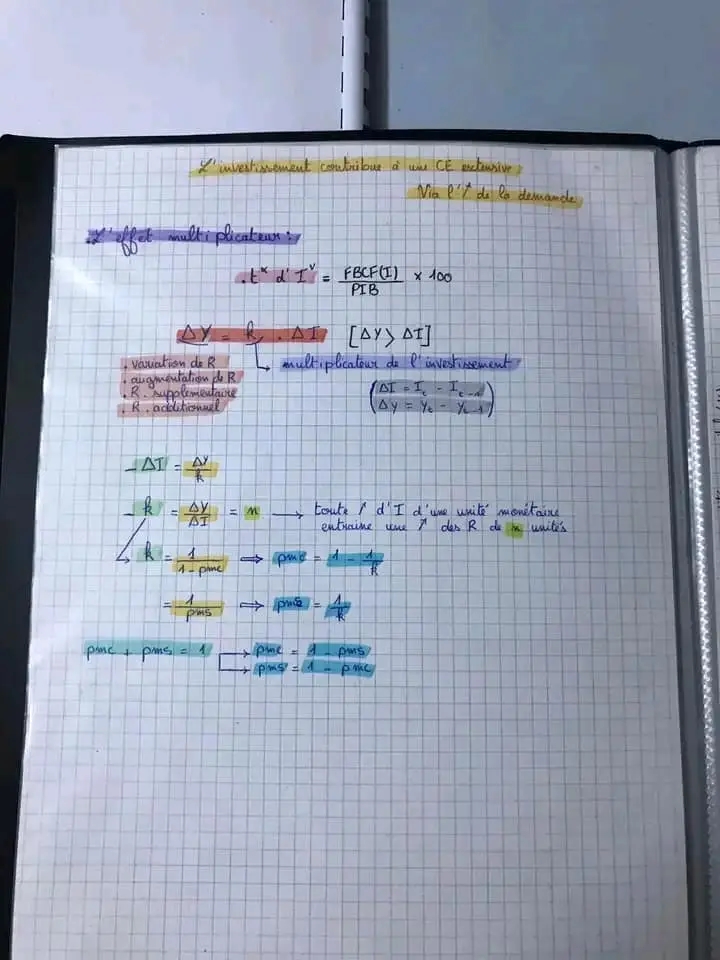 L'investissement contribue à une CE extensive
Via l'↗ de la demande
.L'effet multiplicateur :
. tˣ d'Iᵛ = FBCF(I) / PIB × 100
ΔY = k . ΔI [ΔY > ΔI]
. variation de R
→ multiplicateur de l'investissement
. augmentation de R
. R. supplémentaire
. R. additionnel
(ΔI = Iₜ - Iₜ₋₁
ΔY = Yₜ - Yₜ₋₁)
- ΔI = ΔY / k
- k = ΔY / ΔI = n → toute ↗ d'I d'une unité monétaire
entraine une ↗ des R de n unités
→ k = 1 / 1 - pmc ⟹ pmc = 1 - 1 / k
= 1 / pms ⟹ pms = 1 / k
pmc + pms = 1 → pmc = 1 - pms
→ pms = 1 - pmc